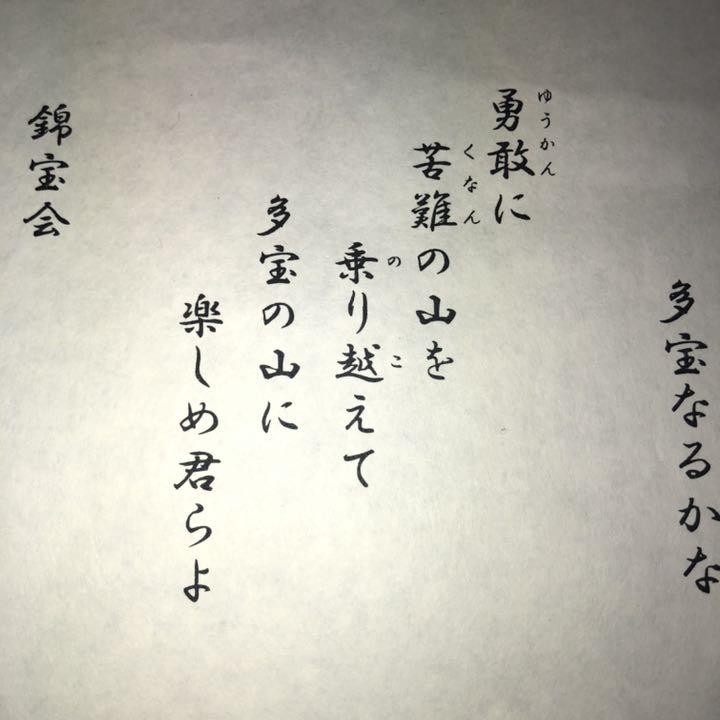 多宝なるかな
勇敢に
ゆうかん
苦難の山を
くなん
乗り越えて
のこ
多宝の山に
楽しめ君らよ
錦宝会